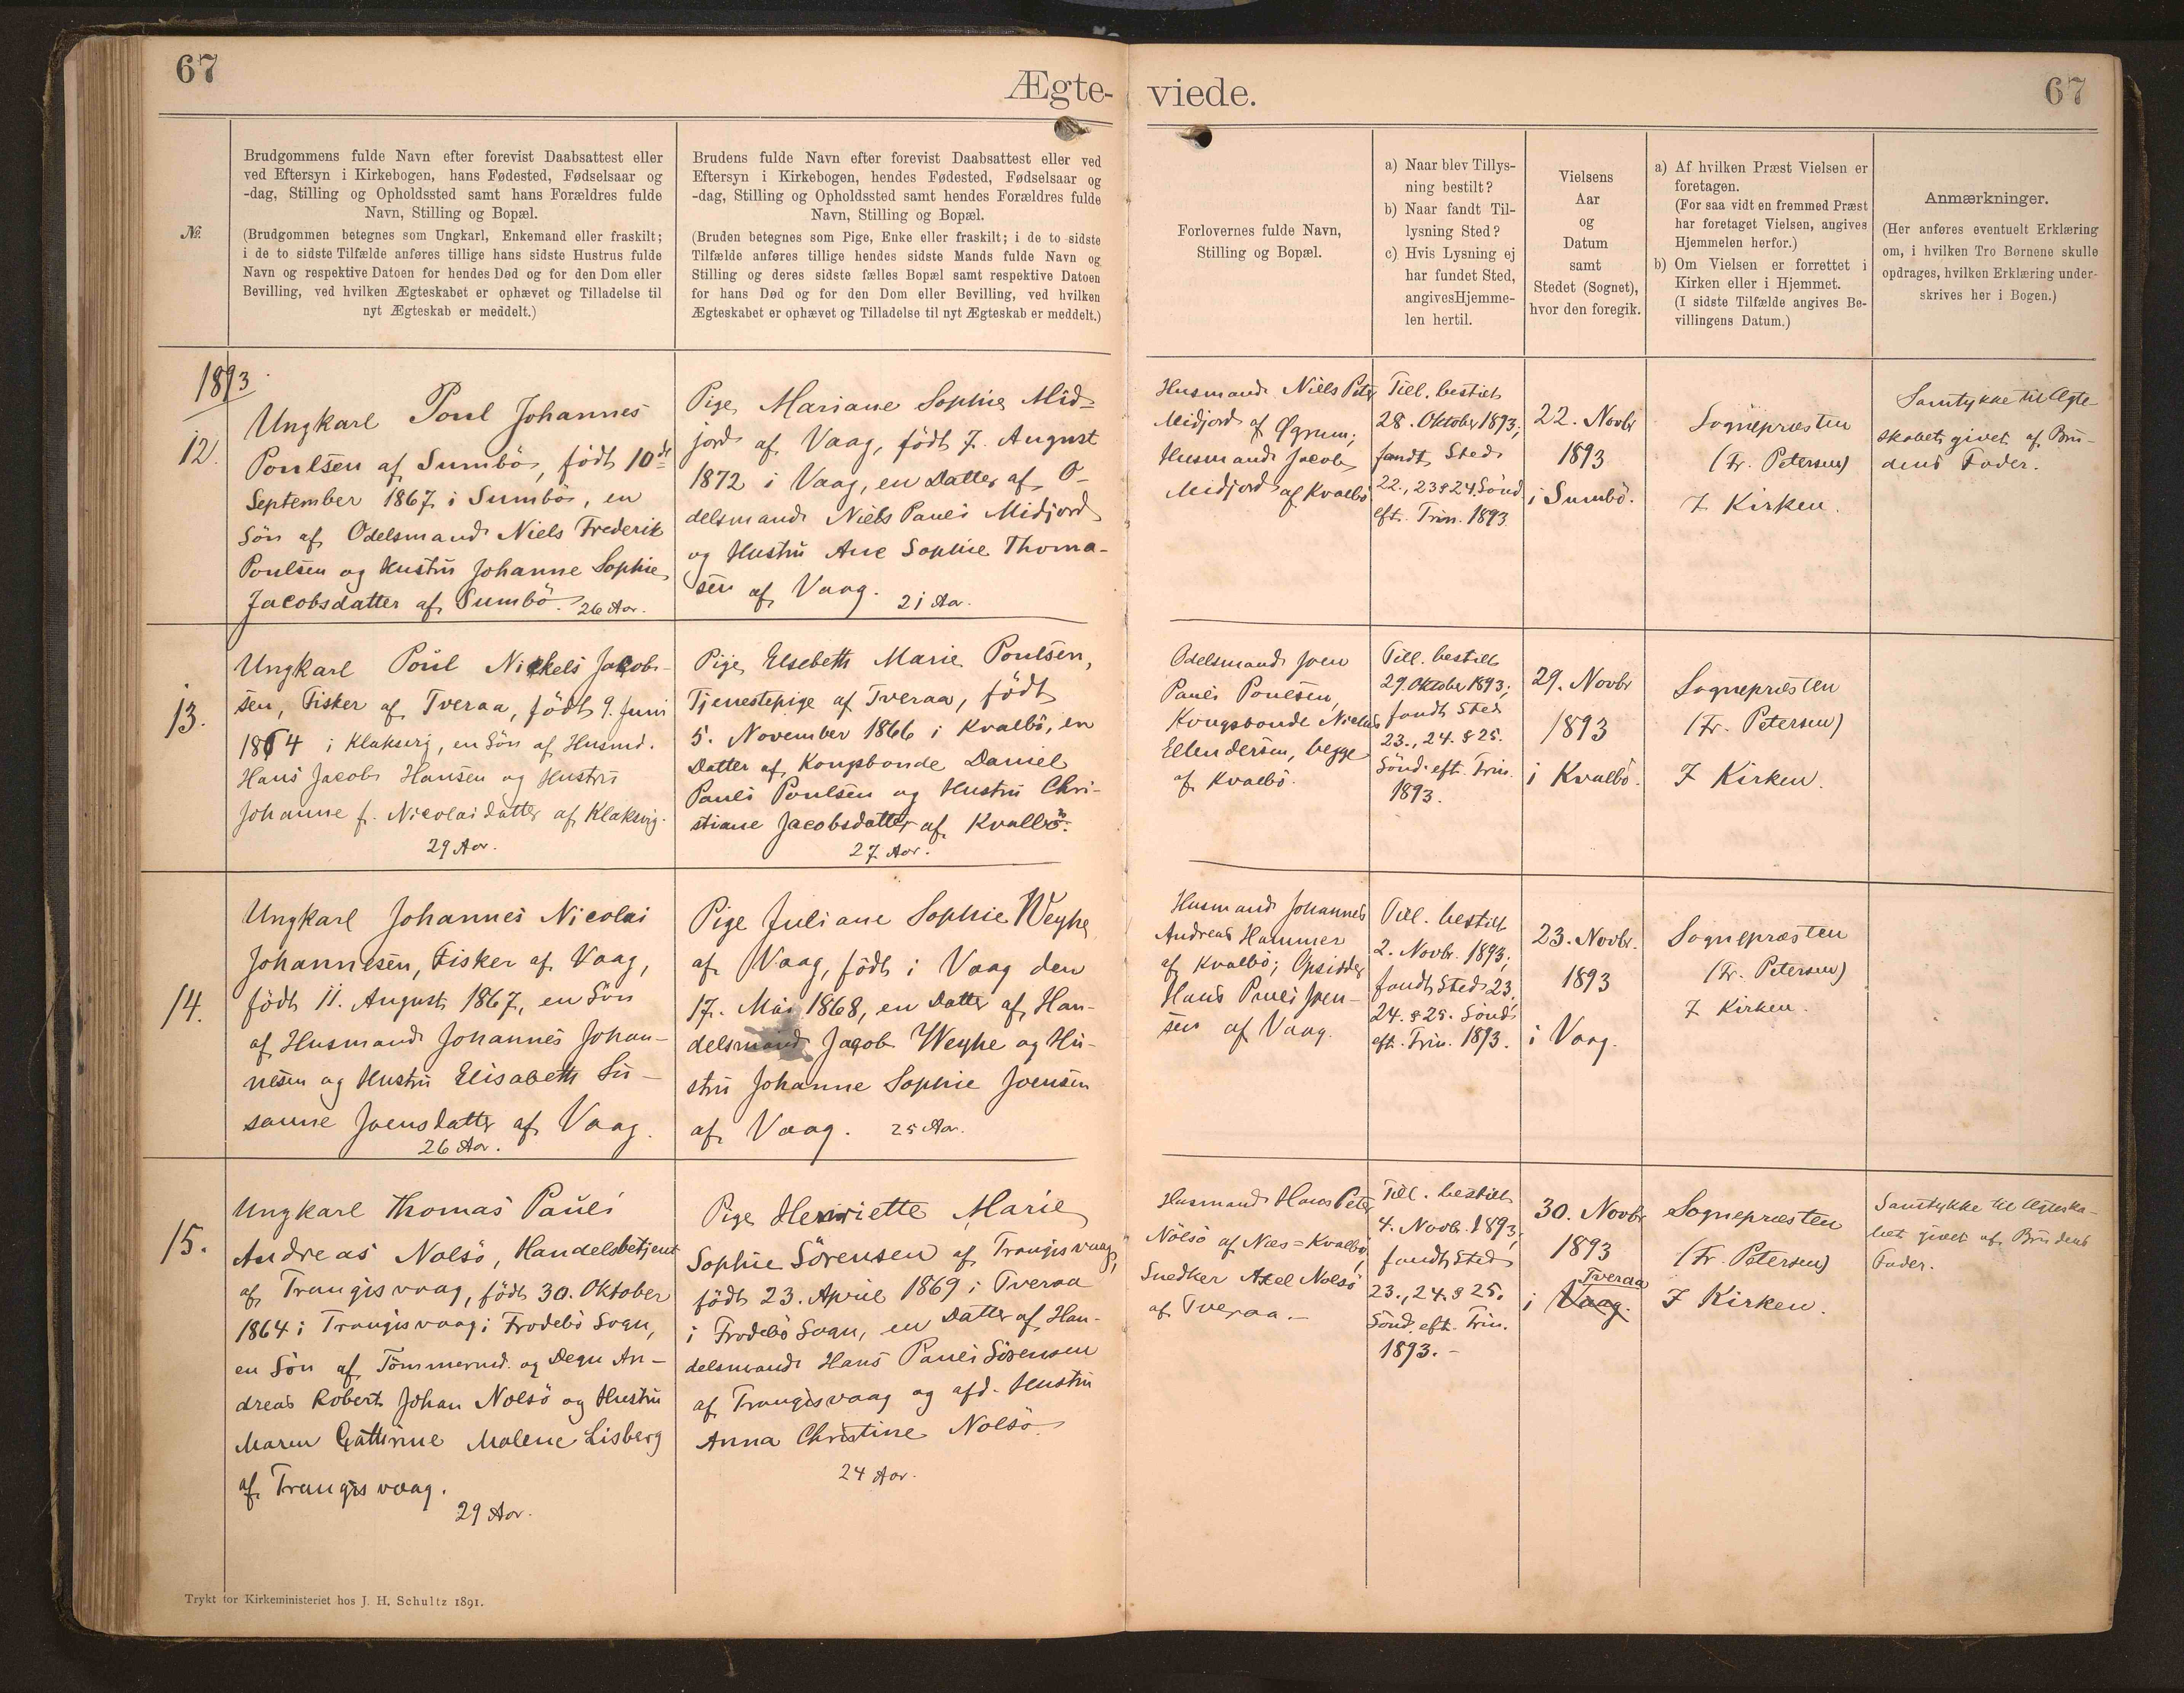 67
Ægte-
№
Brudgommens fulde Navn efter forevist Daabsattest eller
ved Eftersyn i Kirkebogen, hans Fødested, Fødselsaar og
-dag, Stilling og Opholdssted samt hans Forældres fulde
Navn, Stilling og Bopæl.
(Brudgommen betegnes som Ungkarl, Enkemand eller fraskilt;
i de to sidste Tilfælde anføres tillige hans sidste Hustrus fulde
Navn og respektive Datoen for hendes Død og for den Dom eller
Bevilling, ved hvilken Ægteskabet er ophævet og Tilladelse til
nyt Ægteskab er meddelt.)
Brudens fulde Navn efter forevist Daabsattest eller ved
Eftersyn i Kirkebogen, hendes Fødested, Fødselsaar og
-dag, Stilling og Opholdssted samt hendes Forældres fulde
Navn, Stilling og Bopæl.
(Bruden betegnes som Pige, Enke eller fraskilt; i de to sidste
Tilfælde anføres tillige hendes sidste Mands fulde Navn og
Stilling og deres sidste fælles Bopæl samt respektive Datoen
for hans Død og for den Dom eller Bevilling, ved hvilken
Ægteskabet er ophævet og Tilladelse til nyt Ægteskab er meddelt.)
1893
12.
Ungkarl Poul Johannes
Poulsen af Sumbö, født 10de
September 1867 i Sumbö, en
Sön af Odelsmand Niels Frederik
Poulsen og Hustru Johanne Sophie
Jacobsdatter af Sumbö. 26 Aar.
Pige Mariane Sophie Mid=
jord af Vaag, født 7. August
1872 i Vaag, en Datter af O-
delsmand Niels Pauli Midjord
og Hustru Ane Sophie Thoma-
sen af Vaag. 21 Aar.
13.
Ungkarl Poul Nickels Jacob-
sen, Fisker af Tveraa, født 9. Juni
1864 i Klaksvig, en Sön af Husmd.
Hans Jacob Hansen og Hustru
Johanne f. Nicolaidatter af Klaksvig.
29 Aar.
Pige Elsebeth Marie Poulsen,
Tjenestepige af Tveraa, født
5. November 1866 i Kvalbö, en
Datter af Kongsbonde Daniel
Pauli Poulsen og Hustru Chri-
stiane Jacobsdatter af Kvalbö.
27 Aar.
14.
Ungkarl Johannes Nicolai
Johannesen, Fisker af Vaag,
født 11. August 1867, en Sön
af Husmand Johannes Johan-
nesen og Hustru Elisabeth Su-
sanne Joensdatter af Vaag.
26 Aar.
Pige Juliane Sophie Weyhe
af Vaag, født i Vaag den
17. Mai 1868, en Datter af Han-
delsmand Jacob Weyhe og Hu-
stru Johanne Sophie Joensen
af Vaag. 25 Aar.
15.
Ungkarl Thomas Pauli
Andreas Nolsö, Handelsbetjent
af Trangisvaag, født 30. Oktober
1864 i Trangisvaag i Frodebö Sogn,
en Sön af Tömmermd. og Degn An-
dreas Robert Johan Nolsö og Hustru
Maren Cathrine Malene Lisberg
af Trangisvaag.
29 Aar.
Pige Henriette Marie
Sophie Sörensen af Trangisvaag,
født 23. April 1869 i Tveraa
i Frodebö Sogn, en Datter af Han-
delsmand Hans Pauli Sörensen
af Trangisvaag og afd. Hustru
Anna Christine Nolsö.
24 Aar.
Trykt for Kirkeministeriet hos J. H. Schultz 1891.
viede.
67
Forlovernes fulde Navn,
Stilling og Bopæl.
a) Naar blev Tillys-
ning bestilt?
b) Naar fandt Til-
lysning Sted?
c) Hvis Lysning ej
har fundet Sted,
angives Hjemme-
len hertil.
Vielsens
Aar
og
Datum
samt
Stedet (Sognet),
hvor den foregik.
a) Af hvilken Præst Vielsen er
foretagen.
(For saa vidt en fremmed Præst
har foretaget Vielsen, angives
Hjemmelen herfor.)
b) Om Vielsen er forrettet i
Kirken eller i Hjemmet.
(I sidste Tilfælde angives Be-
villingens Datum.)
Anmærkninger.
(Her anføres eventuelt Erklæring
om, i hvilken Tro Børnene skulle
opdrages, hvilken Erklæring under-
skrives her i Bogen.)
Husmand Niels Peter
Midjord af Øgrum;
Husmand Jacob
Midjord af Kvalbö
Till. bestilt
28. Oktober 1893;
fandt Sted
22., 23 & 24. Sönd.
eft. Trin. 1893
22. Novbr
1893
i Sumbö.
Sognepræsten
(Fr. Petersen)
I Kirken.
Samtykke til Ægte-
skabet givet af Bru-
dens Fader.
Odelsmand Joen
Pauli Poulsen,
Kongsbonde Niclas
Ellendersen, begge
af Kvalbö.
Till. bestilt
29. Oktober 1893;
fandt Sted
23., 24. & 25.
Sönd. eft. Trin.
1893.
29. Novbr
1893
i Kvalbö.
Sognepræsten
(Fr. Petersen)
I Kirken.
Husmand Johannes
Andreas Hammer
af Kvalbö; Opsidder
Hans Pauli Joen-
sen af Vaag.
Till. bestilt
2. Novbr. 1893;
fandt Sted 23,
24. & 25. Sönd.
eft. Trin. 1893.
23. Novbr.
1893
i Vaag.
Sognepræsten
(Fr. Petersen)
I Kirken.
Husmand Hans Peter
Nölsö af Næs=Kvalbö,
Snedker Axel Nolsö
af Tveraa.-
Till. bestilt
4. Novbr. 1893;
fandt Sted
23., 24. & 25.
Sönd. eft. Trin.
1893.-
30. Novbr
1893
Tveraa
i Vaag.
Sognepræsten
(Fr. Petersen)
I Kirken.
Samtykke til Ægteska-
bet givet af Brudens
Fader.